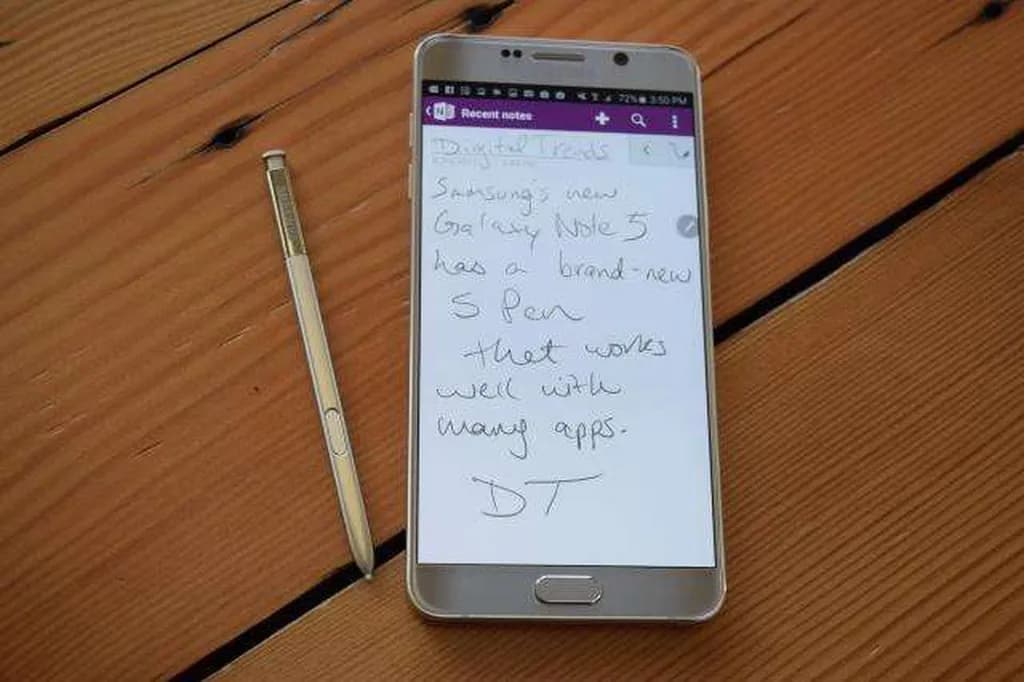 SAMSUNG
72% 3:50 PM
N Recent notes
Digital Trends
Samsung's new
Galaxy Note 5
has a brand-new
S Pen
that works
well with
many apps.
DT